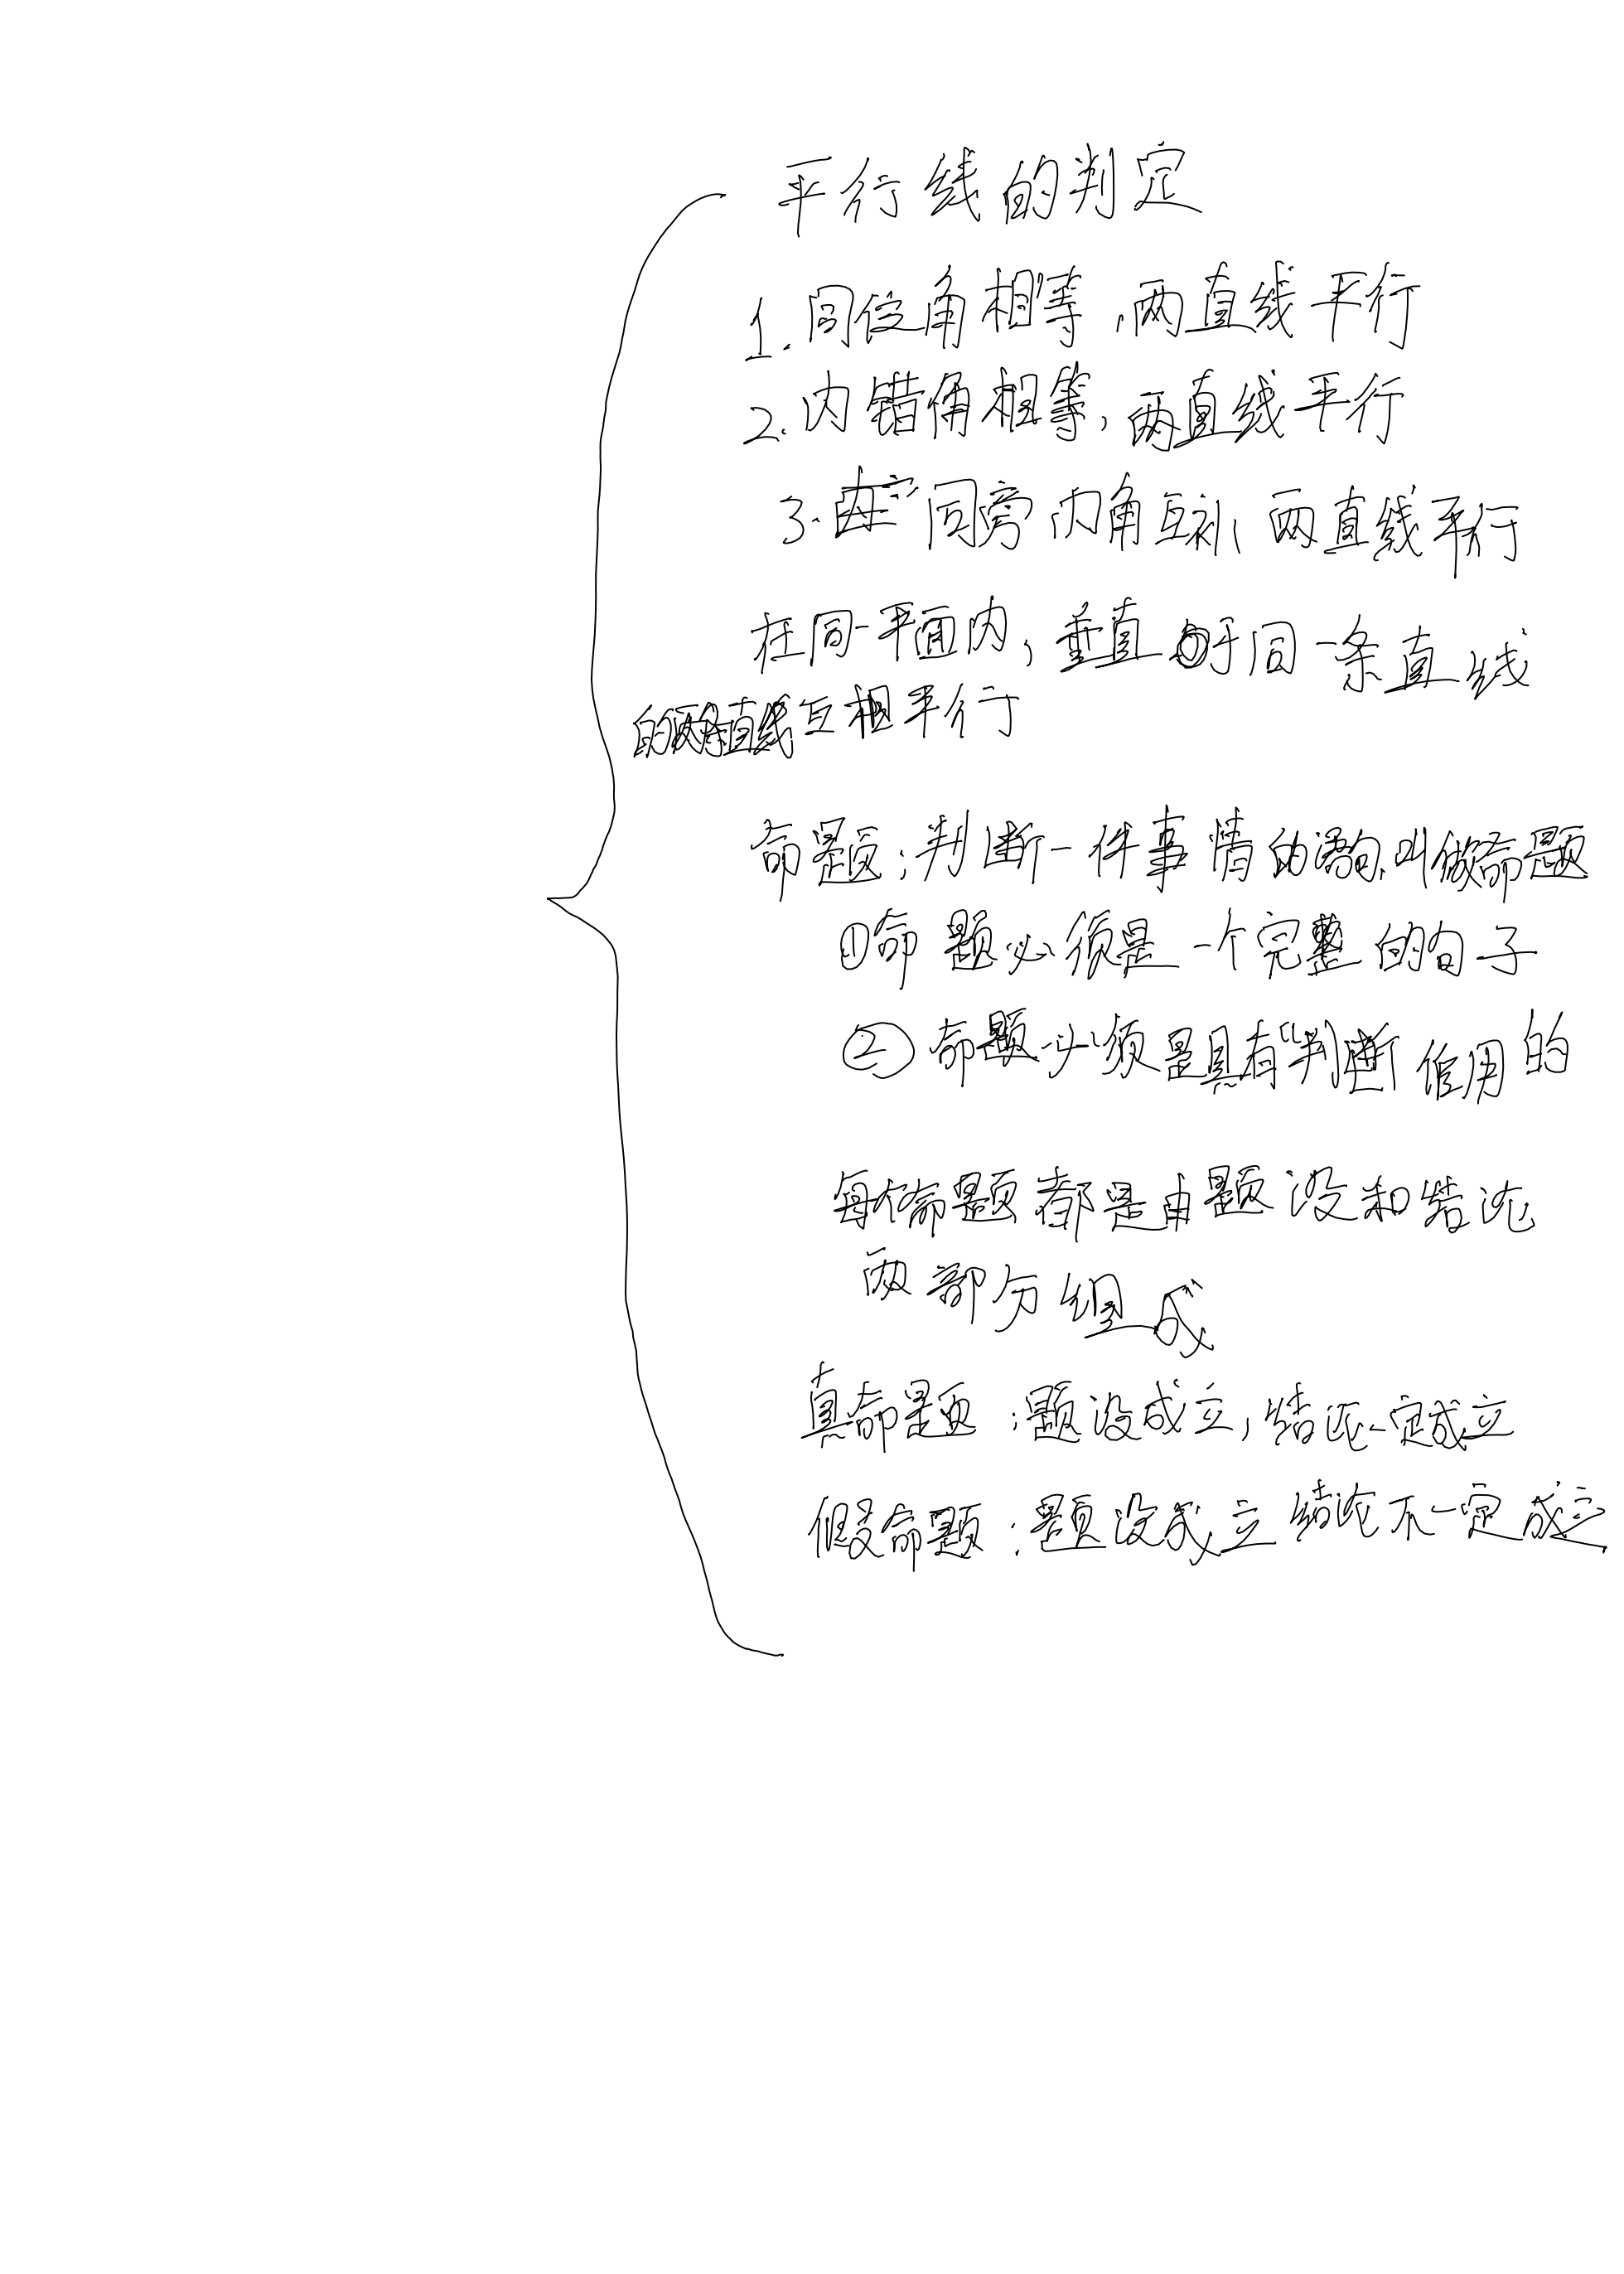 平行线的判定
1.同位角相等,两直线平行
2.内错角相等,两直线平行
3.同旁内角互补,两直线平行
在同一平面内,垂直于同一条直线
的两条直线互相平行
命题:判断一件事情的语句,叫做命题
①命题必须是一个完整的句子
②命题必须是具有“判断作用的
每个命题都是由题设和结论
两部分组成
真命题:题设成立,结论一定成立
假命题:题设成立结论不一定成立